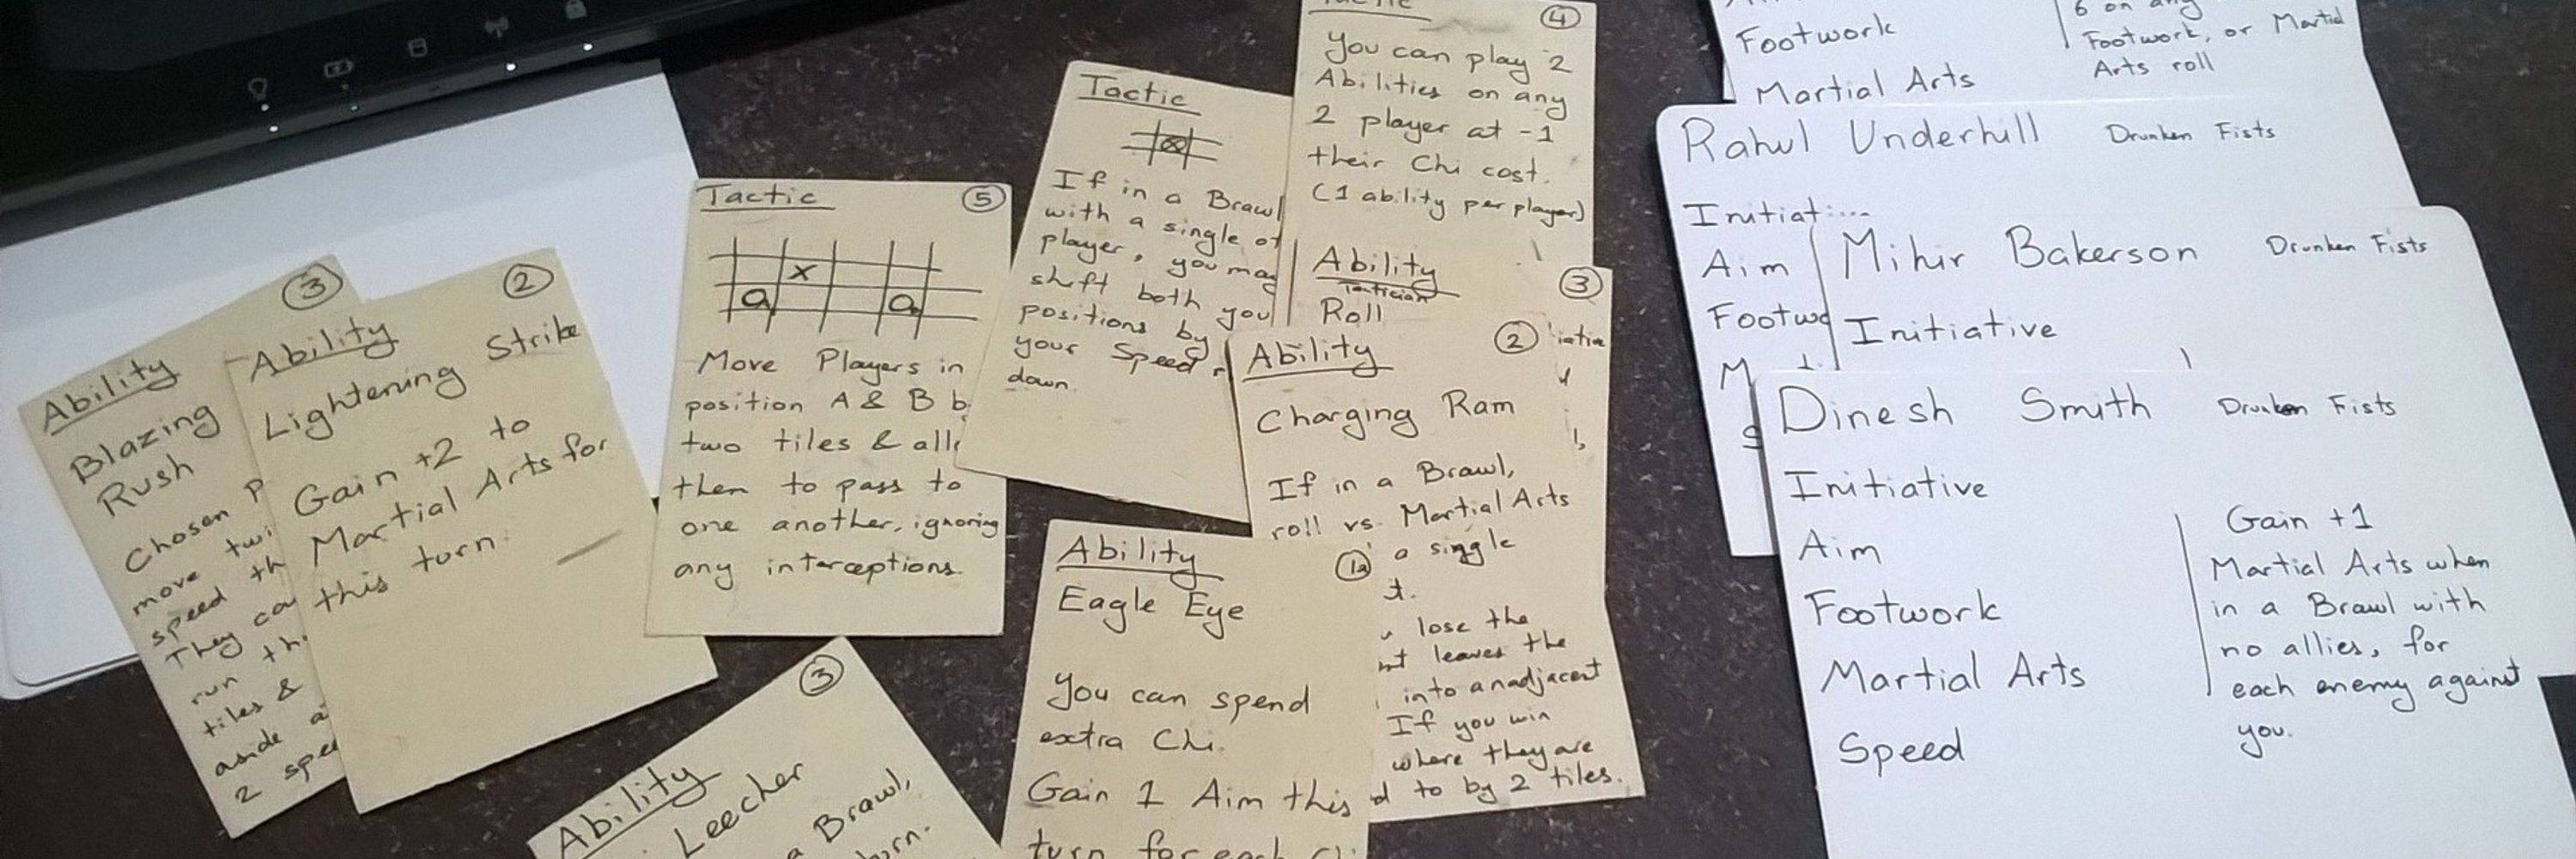 3
Ability
Blazing
Rush
Chosen
move
speed
They
run
tiles &
aside
2
2
Ability
Lightening Strike
Gain +2 to
Martial Arts for
this turn.
Tactic 5
x
a a
Move Players in
position A & B
two tiles &
then to pass to
one another, ignoring
any interceptions.
3
Ability
Leecher
a Brawl,
Tactic
If in a Brawl
with a single
player, you may
shift both
positions by
your Speed
down.
4
You can play 2
Abilities on any
2 player at -1
their Chi cost.
(1 ability per player)
Ability 3
Tactician
Roll
Ability 2
Charging Ram
If in a Brawl,
roll vs. Martial Arts
a single
lose the
leaves the
into an adjacent
If you win
where they are
to by 2 tiles.
Ability 1a
Eagle Eye
You can spend
extra Chi.
Gain 1 Aim this
turn for each
Footwork
Martial Arts
6 on any
Footwork, or Martial
Arts roll
Rahul Underhill Drunken Fists
Aim
Mihir Bakerson Drunken Fists
Initiative
Dinesh Smith Drunken Fists
Initiative
Aim
Footwork
Martial Arts
Speed
Gain +1
Martial Arts when
in a Brawl with
no allies, for
each enemy against
you.